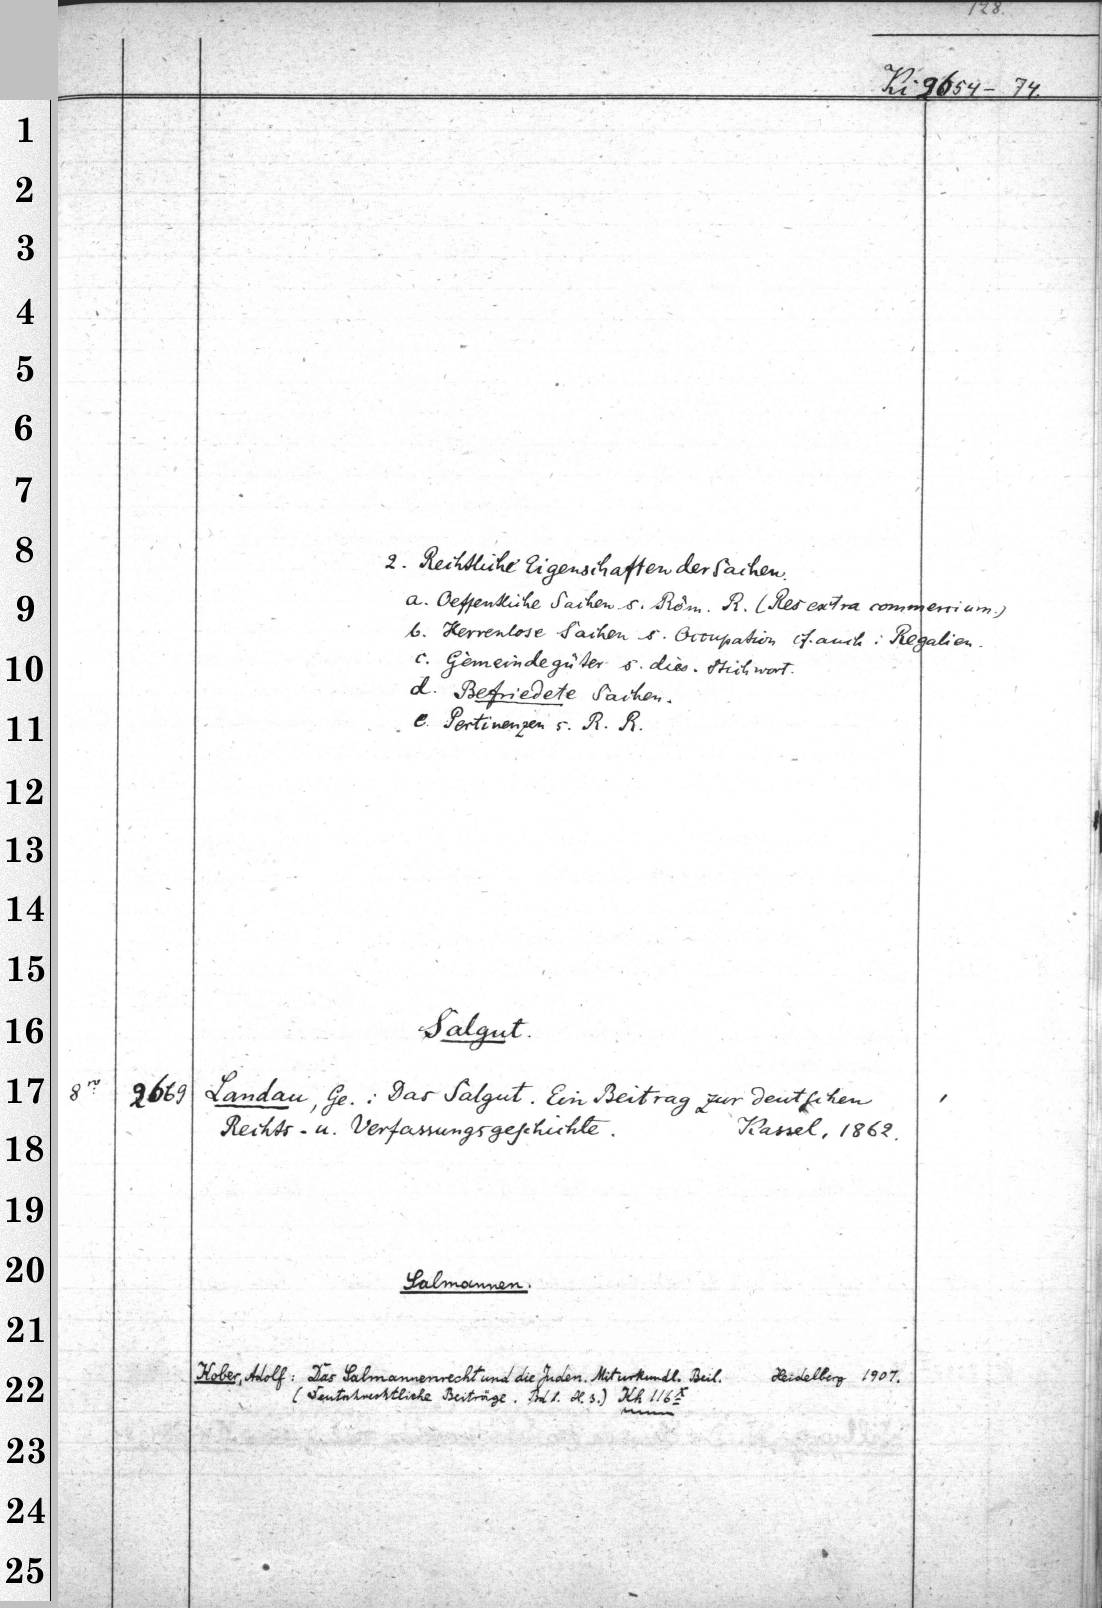 128.
Ki 2654 – 74.
1
2
3
4
5
6
7
8
2. Rechtliche Eigenschaften der Sachen.
9
a. Oeffentliche Sachen s. Röm. R. (Res extra commercium.)
b. Herrenlose Sachen s. Occupation cf. auch: Regalien.
10
c. Gemeindegüter s. dies. Stichwort.
d. Befriedete Sachen.
11
e. Pertinenzen s. R. R.
12
13
14
15
16
Salgut.
17
8° 2669 Landau, Ge.: Das Salgut. Ein Beitrag zur deutschen
Rechts- u. Verfassungsgeschichte. Kassel, 1862.
18
19
20
Salmannen.
21
22
Kober, Adolf: Das Salmannenrecht und die Juden. Mit urkundl. Beil. Heidelberg 1907.
(Deutschrechtliche Beiträge. Bd 1. H. 3.) Kh 116
23
24
25